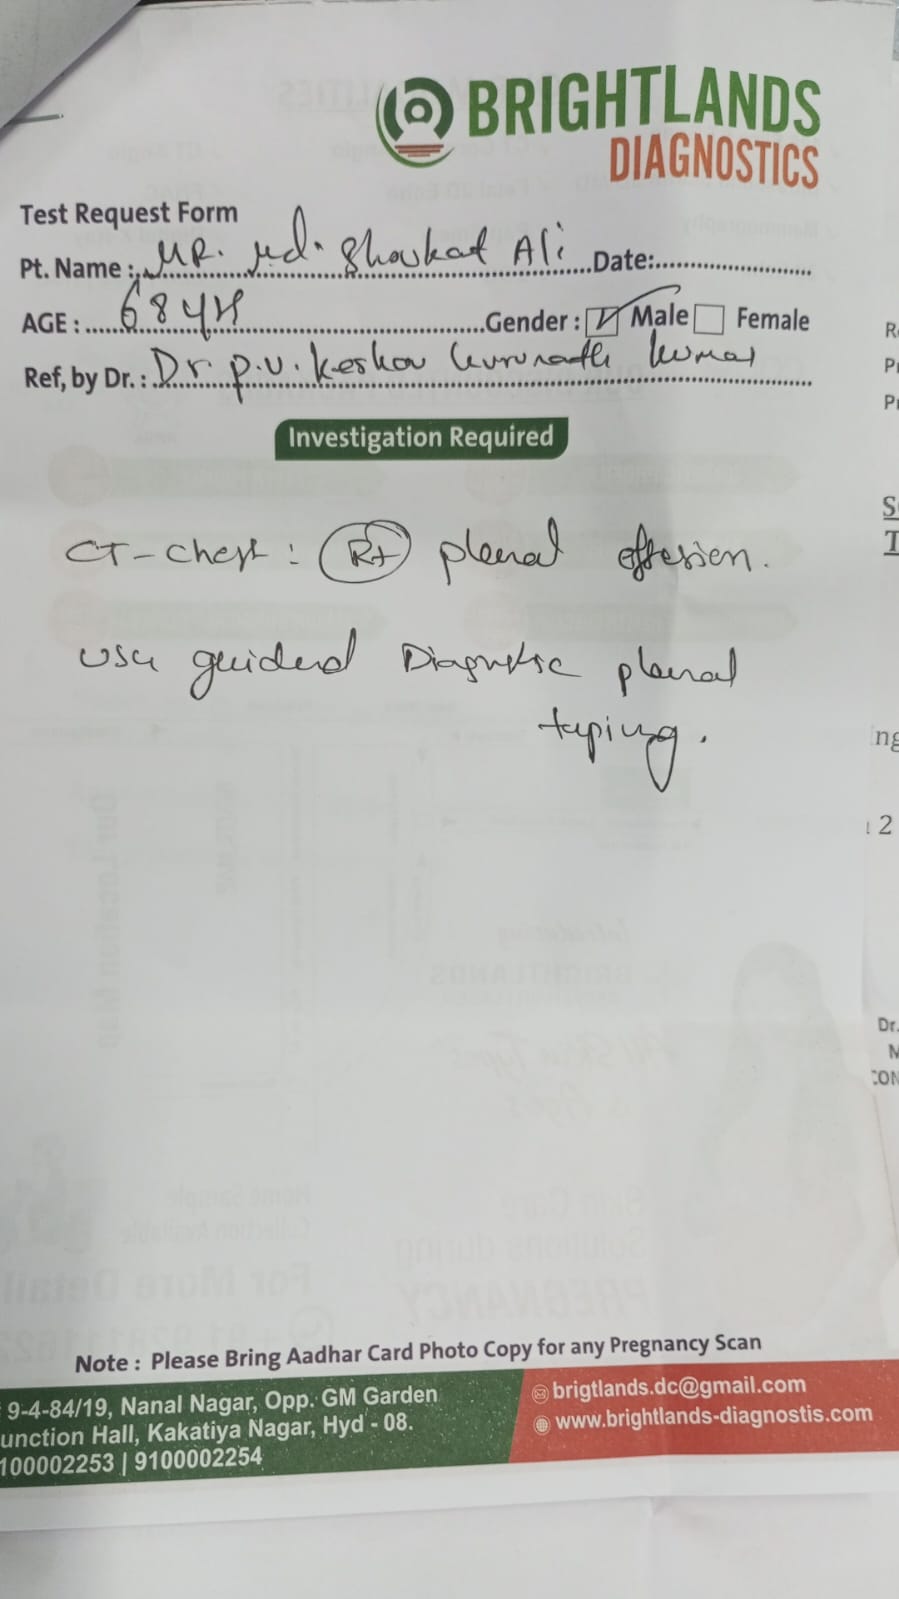 BRIGHTLANDS
DIAGNOSTICS
Test Request Form
Pt. Name : MR. Md. Shoukat Ali Date:
AGE : 68 yr Gender : Male Female
Ref, by Dr. : Dr. P.V. Keshav Kumar
Investigation Required
CT-Chest : Rt pleural effusion.
USG guided Diagnostic pleural
taping.
Note : Please Bring Aadhar Card Photo Copy for any Pregnancy Scan
9-4-84/19, Nanal Nagar, Opp. GM Garden
unction Hall, Kakatiya Nagar, Hyd - 08.
100002253 | 9100002254
brigtlands.dc@gmail.com
www.brightlands-diagnostis.com
ng
2
Dr.